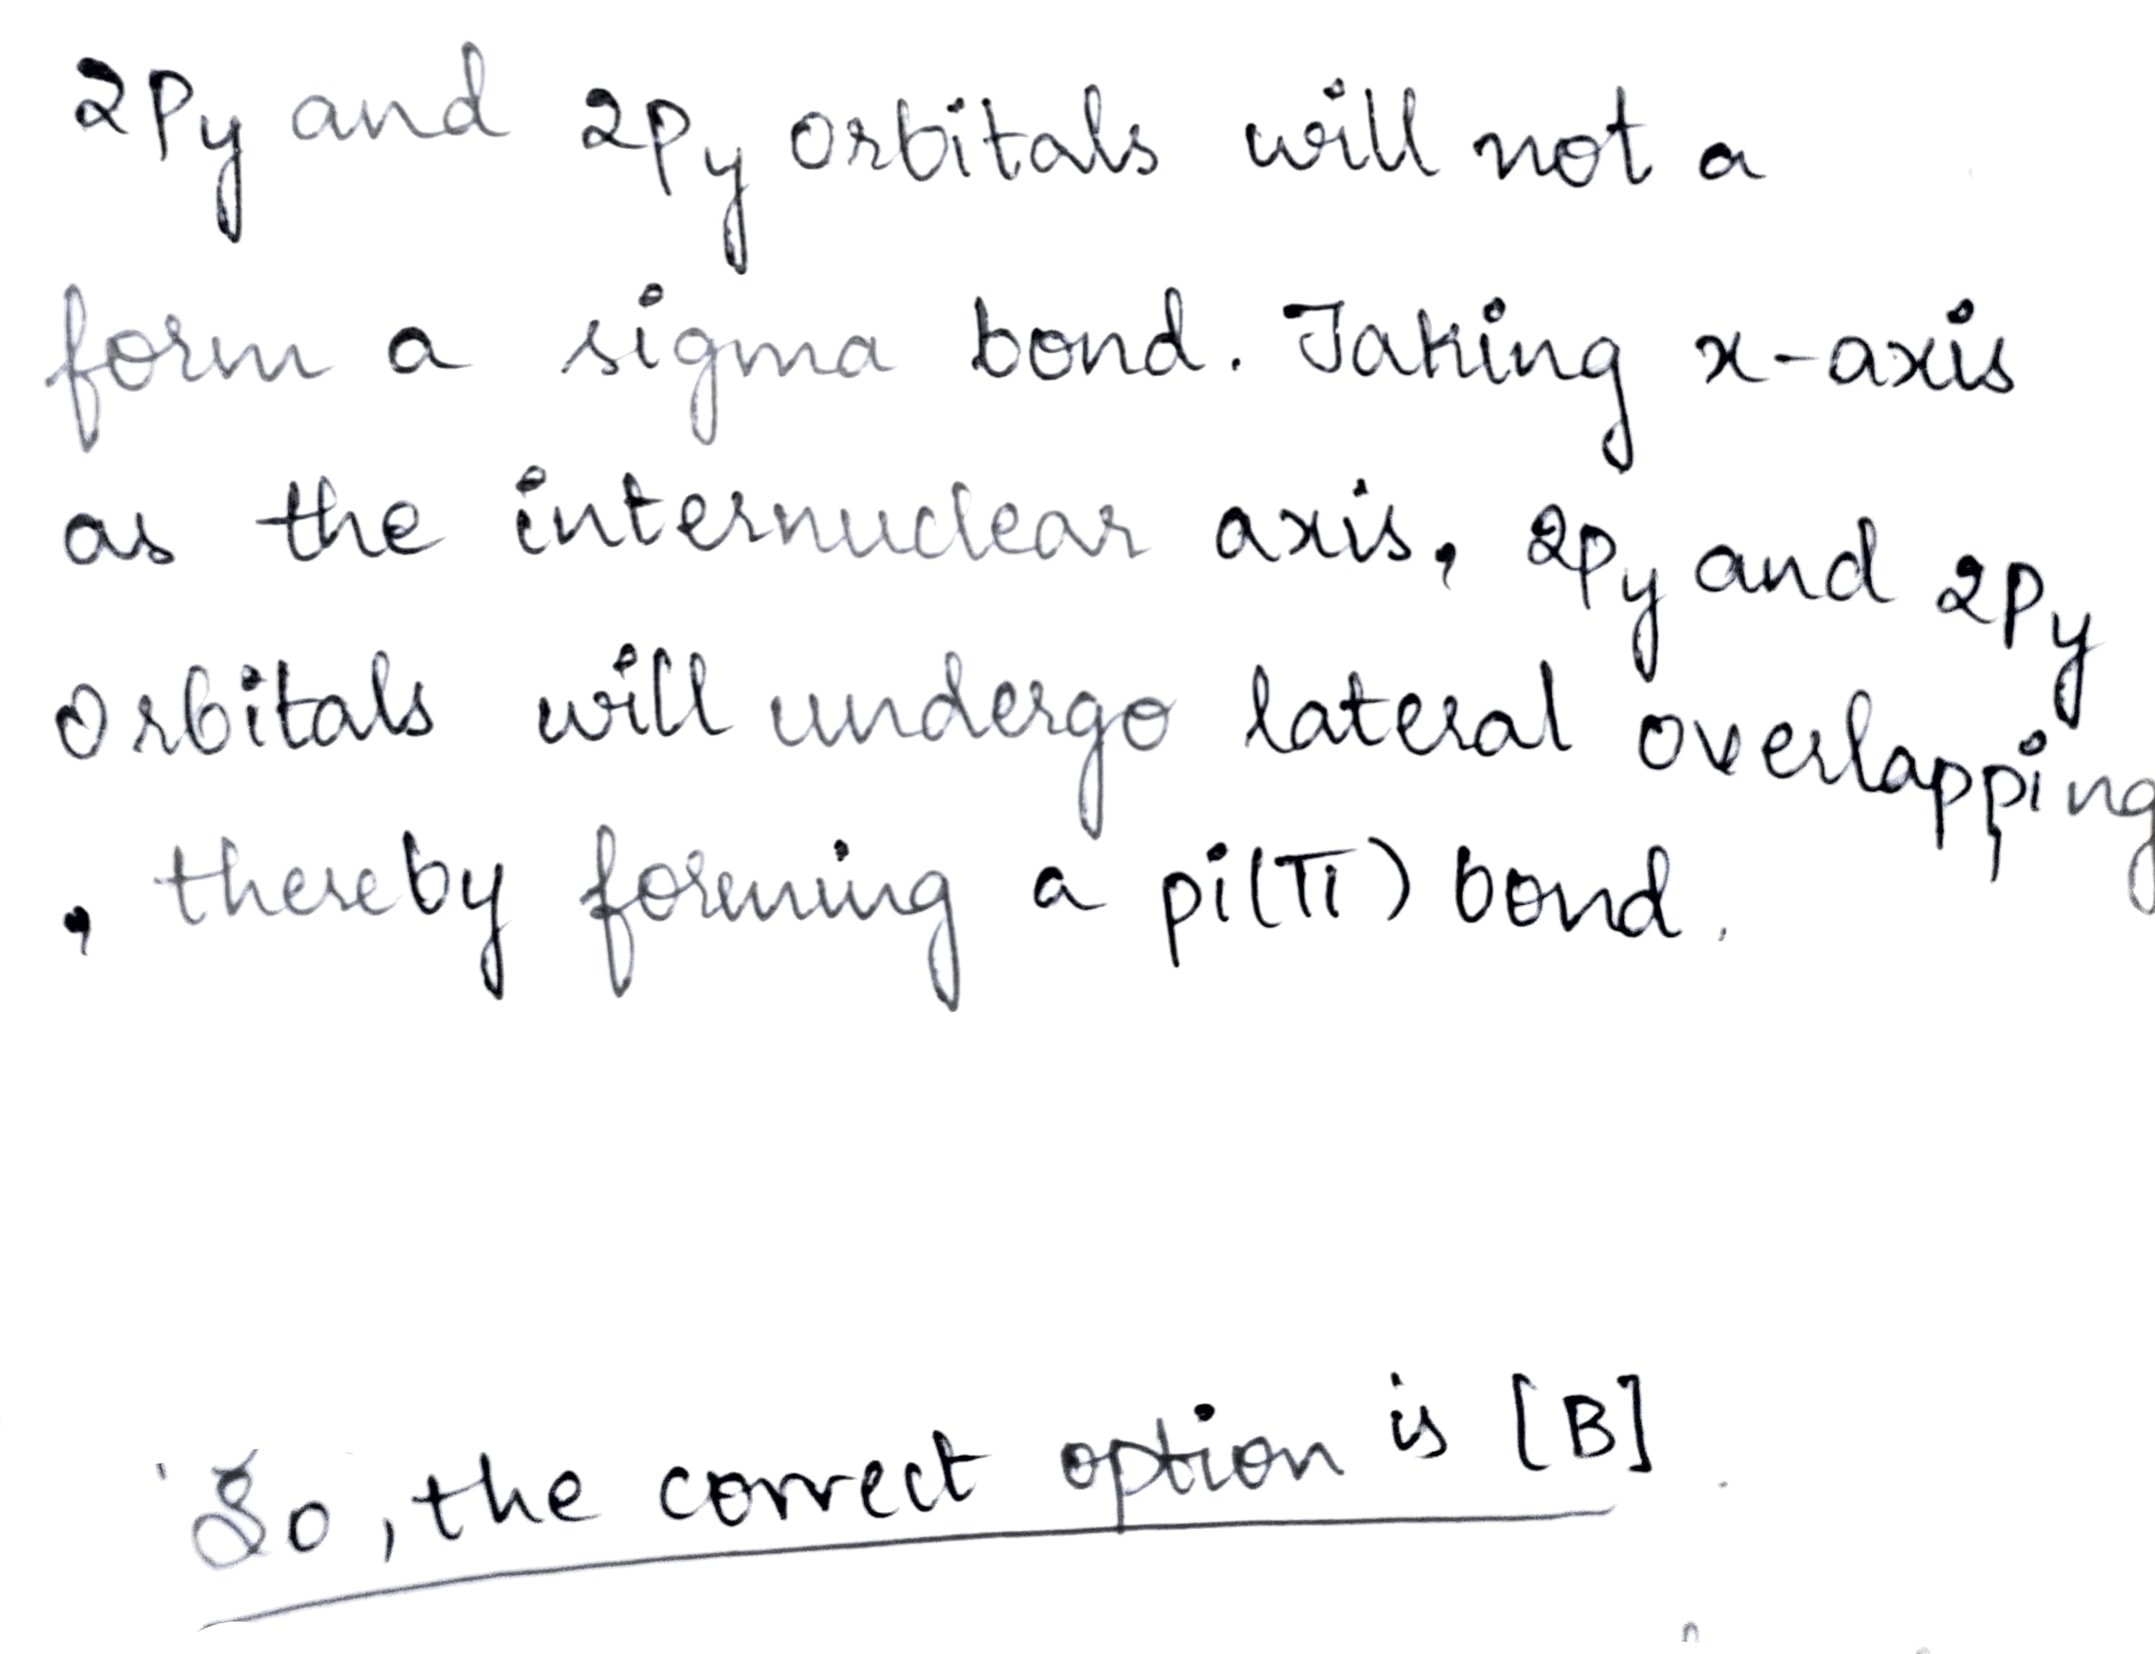 2Py and 2py orbitals will not a
form a sigma bond. Taking x-axis
as the internuclear axis, 2py and 2py
orbitals will undergo lateral overlapping
, thereby forming a pi(π) bond.
So, the correct option is [B]